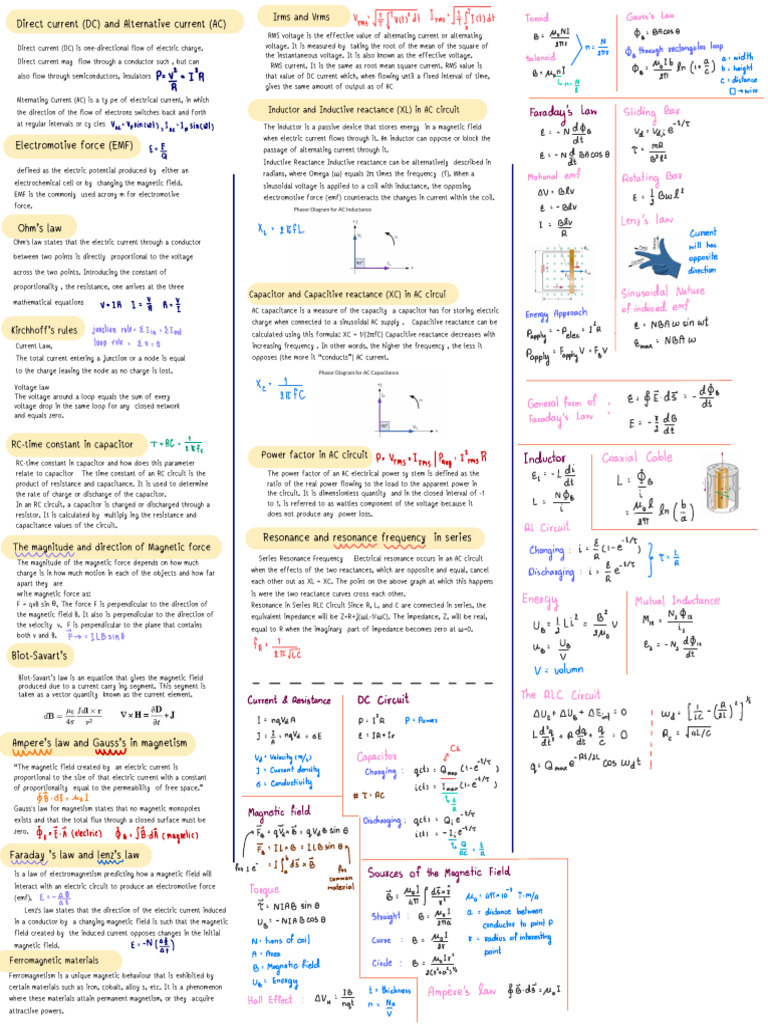 Direct current (DC) and Alternative current (AC)
Direct current (DC) is one-directional flow of electric charge.
Direct current may flow through a conductor such , but can
also flow through semiconductors, insulators P = V²/R = I²R
Alternating Current (AC) is a ty pe of electrical current, in which
the direction of the flow of electrons switches back and forth
at regular intervals or cy cles V_AC = V_P sin(ωt), I_AC = I_P sin(ωt)
Electromotive force (EMF) ε = E/Q
defined as the electric potential produced by either an
electrochemical cell or by changing the magnetic field.
EMF is the commonly used acrony m for electromotive
force.
Ohm's law
Ohm's law states that the electric current through a conductor
between two points is directly proportional to the voltage
across the two points. Introducing the constant of
proportionality , the resistance, one arrives at the three
mathematical equations V = IR I = V/R R = V/I
Kirchhoff's rules junction rule = ΣI in = ΣI out
loop rule = ΣV = 0
Current Law,
The total current entering a junction or a node is equal
to the charge leaving the node as no charge is lost.
Voltage law
The voltage around a loop equals the sum of every
voltage drop in the same loop for any closed network
and equals zero.
RC-time constant in capacitor τ = RC = 1/2πf_c
RC-time constant in capacitor and how does this parameter
relate to capacitor The time constant of an RC circuit is the
product of resistance and capacitance. It is used to determine
the rate of charge or discharge of the capacitor.
In an RC circuit, a capacitor is charged or discharged through a
resistor. It is calculated by multiply ing the resistance and
capacitance values of the circuit.
The magnitude and direction of Magnetic force
The magnitude of the magnetic force depends on how much
charge is in how much motion in each of the objects and how far
apart they are
write magnetic force as:
F = qvB sin θ, The force F is perpendicular to the direction of
the magnetic field B. It also is perpendicular to the direction of
the velocity v. F is perpendicular to the plane that contains
both v and B. F → = ILB sin θ
Biot-Savart's
Biot-Savart's law is an equation that gives the magnetic field
produced due to a current carry ing segment. This segment is
taken as a vector quantity known as the current element.
dB = μ₀/4π Idl × r/r² ∇ × H = ∂D/∂t + J
Ampere's law and Gauss's in magnetism
"The magnetic field created by an electric current is
proportional to the size of that electric current with a constant
of proportionality equal to the permeability of free space."
∮B · ds = μ₀I
Gauss's law for magnetism states that no magnetic monopoles
exists and that the total flux through a closed surface must be
zero. Φ_E = E · A (electric) Φ_B = ∫B dA (magnetic)
Faraday 's law and lenz's law
Is a law of electromagnetism predicting how a magnetic field will
interact with an electric circuit to produce an electromotive force
(emf). ε = -ΔΦ/Δt
Lenz's law states that the direction of the electric current induced
in a conductor by a changing magnetic field is such that the magnetic
field created by the induced current opposes changes in the initial
magnetic field. ε = -N(ΔΦ/Δt)
Ferromagnetic materials
Ferromagnetism is a unique magnetic behaviour that is exhibited by
certain materials such as iron, cobalt, alloy s, etc. It is a phenomenon
where these materials attain permanent magnetism, or they acquire
attractive powers.
Irms and Vrms V_rms = √(1/T ∫₀ᵀ V(t)² dt) I_rms = √(1/T ∫₀ᵀ I(t) dt)
RMS voltage is the effective value of alternating current or alternating
voltage. It is measured by taking the root of the mean of the square of
the instantaneous voltage. It is also known as the effective voltage.
RMS current. It is the same as root mean square current. RMS value is
that value of DC current which, when flowing until a fixed interval of time,
gives the same amount of output as of AC
Inductor and Inductive reactance (XL) in AC circuit
The inductor is a passive device that stores energy in a magnetic field
when electric current flows through it. An inductor can oppose or block the
passage of alternating current through it.
Inductive Reactance Inductive reactance can be alternatively described in
radians, where Omega (ω) equals 2π times the frequency (f). When a
sinusoidal voltage is applied to a coil with inductance, the opposing
electromotive force (emf) counteracts the changes in current within the coil.
Phasor Diagram for AC Inductance
X_L = 2πfL
90°
Capacitor and Capacitive reactance (XC) in AC circui
AC capacitance is a measure of the capacity a capacitor has for storing electric
charge when connected to a sinusoidal AC supply . Capacitive reactance can be
calculated using this formula: XC = 1/(2πfC) Capacitive reactance decreases with
increasing frequency . In other words, the higher the frequency , the less it
opposes (the more it "conducts") AC current.
Phasor Diagram for AC Capacitance
X_C = 1/2πfC
Power factor in AC circuit P = V_rms × I_rms | P_avg = I²_rms R
The power factor of an AC electrical power sy stem is defined as the
ratio of the real power flowing to the load to the apparent power in
the circuit. It is dimensionless quantity and in the closed interval of -1
to 1. is referred to as wattles component of the voltage because it
does not produce any power loss.
Resonance and resonance frequency in series
Series Resonance Frequency Electrical resonance occurs in an AC circuit
when the effects of the two reactances, which are opposite and equal, cancel
each other out as XL = XC. The point on the above graph at which this happens
is were the two reactance curves cross each other.
Resonance in Series RLC Circuit Since R, L, and C are connected in series, the
equivalent impedance will be Z=R+j(ωL-1/ωC). The impedance, Z, will be real,
equal to R when the imaginary part of impedance becomes zero at ω=0.
f_R = 1/2π√LC
Current & Resistance
I = nqV_dA
J = I/A = nqV_d = σE
V_d = Velocity (m/s)
J = Current density
σ = Conductivity
DC Circuit
P = I²R P = Power
ε = IR + Ir
Capacitor
Cε
Charging : q(t) = Q_max (1-e^-t/τ)
# τ = RC i(t) = I_max (1-e^-t/τ)
ε/R
Discharging : q(t) = Q_i e^-t/τ
i(t) = -I_i e^-t/τ
Q/RC = ε/R
Magnetic field
F_B = qV × B = qV_dB sin θ
F_B = IL × B = ILB sin θ
for 1 e⁻ = I∫ₐᵇ ds × B
for common material
Torque
τ = NIAB sin θ
U_B = -NIAB cos θ
N = turns of coil
A = Area
B = Magnetic field
U_B = Energy
Hall Effect : ΔV_H = IB/nqt
t = thickness
n = N_A/V
Sources of the Magnetic Field
B = μ₀I/4π ∫ ds × r/r² μ₀ = 4π × 10⁻⁷ T·m/A
Straight : B = μ₀I/2πa
a = distance between
conductor to point p
Curve : B = μ₀I/2r
r = radius of interesting
point
Circle : B = μ₀Ir²/2(x²+r²)^3/2
Ampère's law ∮B · ds = μ₀I
Toroid
B = μ₀NI/2πr
Solenoid
B = μ₀nI
n = N/ℓ
Gauss's Law
Φ_B = BA cos θ
Φ_B through rectangular loop
Φ_B = μ₀Ib/2π ln(1 + a/c)
a = width
b = height
c = distance
□ → wire
Faraday's Law
ε = -N dΦ_B/dt
ε = -N d/dt BA cos θ
Motional emf
ΔV = Bℓv
ε = -Bℓv
I = Bℓv/R
Sliding Bar
V_d = V_di e^-t/τ
τ = mR/B²ℓ²
Rotating Bar
ε = 1/2 Bωℓ²
Lenz's law
Current
will has
opposite
direction
Energy Approach
P_apply = -P_elec = I²R
P_apply = F_apply V = F_B V
Sinusoidal Nature
of induced emf
ε = NBAω sin ωt
ε_max = NBAω
General form of
Faraday's Law : ε = ∮E · ds = -dΦ_B/dt
E = -r/2 dB/dt
Inductor
ε_L = -L di/dt
L = NΦ_B/i
Coaxial Cable
L = Φ_B/i
= μ₀ℓ/2π ln(b/a)
RL Circuit
Changing : i = ε/R (1-e^-t/τ)
Discharging : i = ε/R e^-t/τ
τ = L/R
Energy
U_B = 1/2 Li² = B²/2μ₀ V
u_B = U_B/V
V = volumn
Mutual Inductance
M₁₂ = N₂Φ₁₂/i₁
ε₂ = -N₂ dΦ₁₂/dt
The RLC Circuit
ΔU_E + ΔU_B + ΔE_int = 0
L d²q/dt² + R dq/dt + q/C = 0
q = Q_max e^-Rt/2L cos ω_d t
ω_d = [1/LC - (R/2L)²]^1/2
R_c = √4L/C